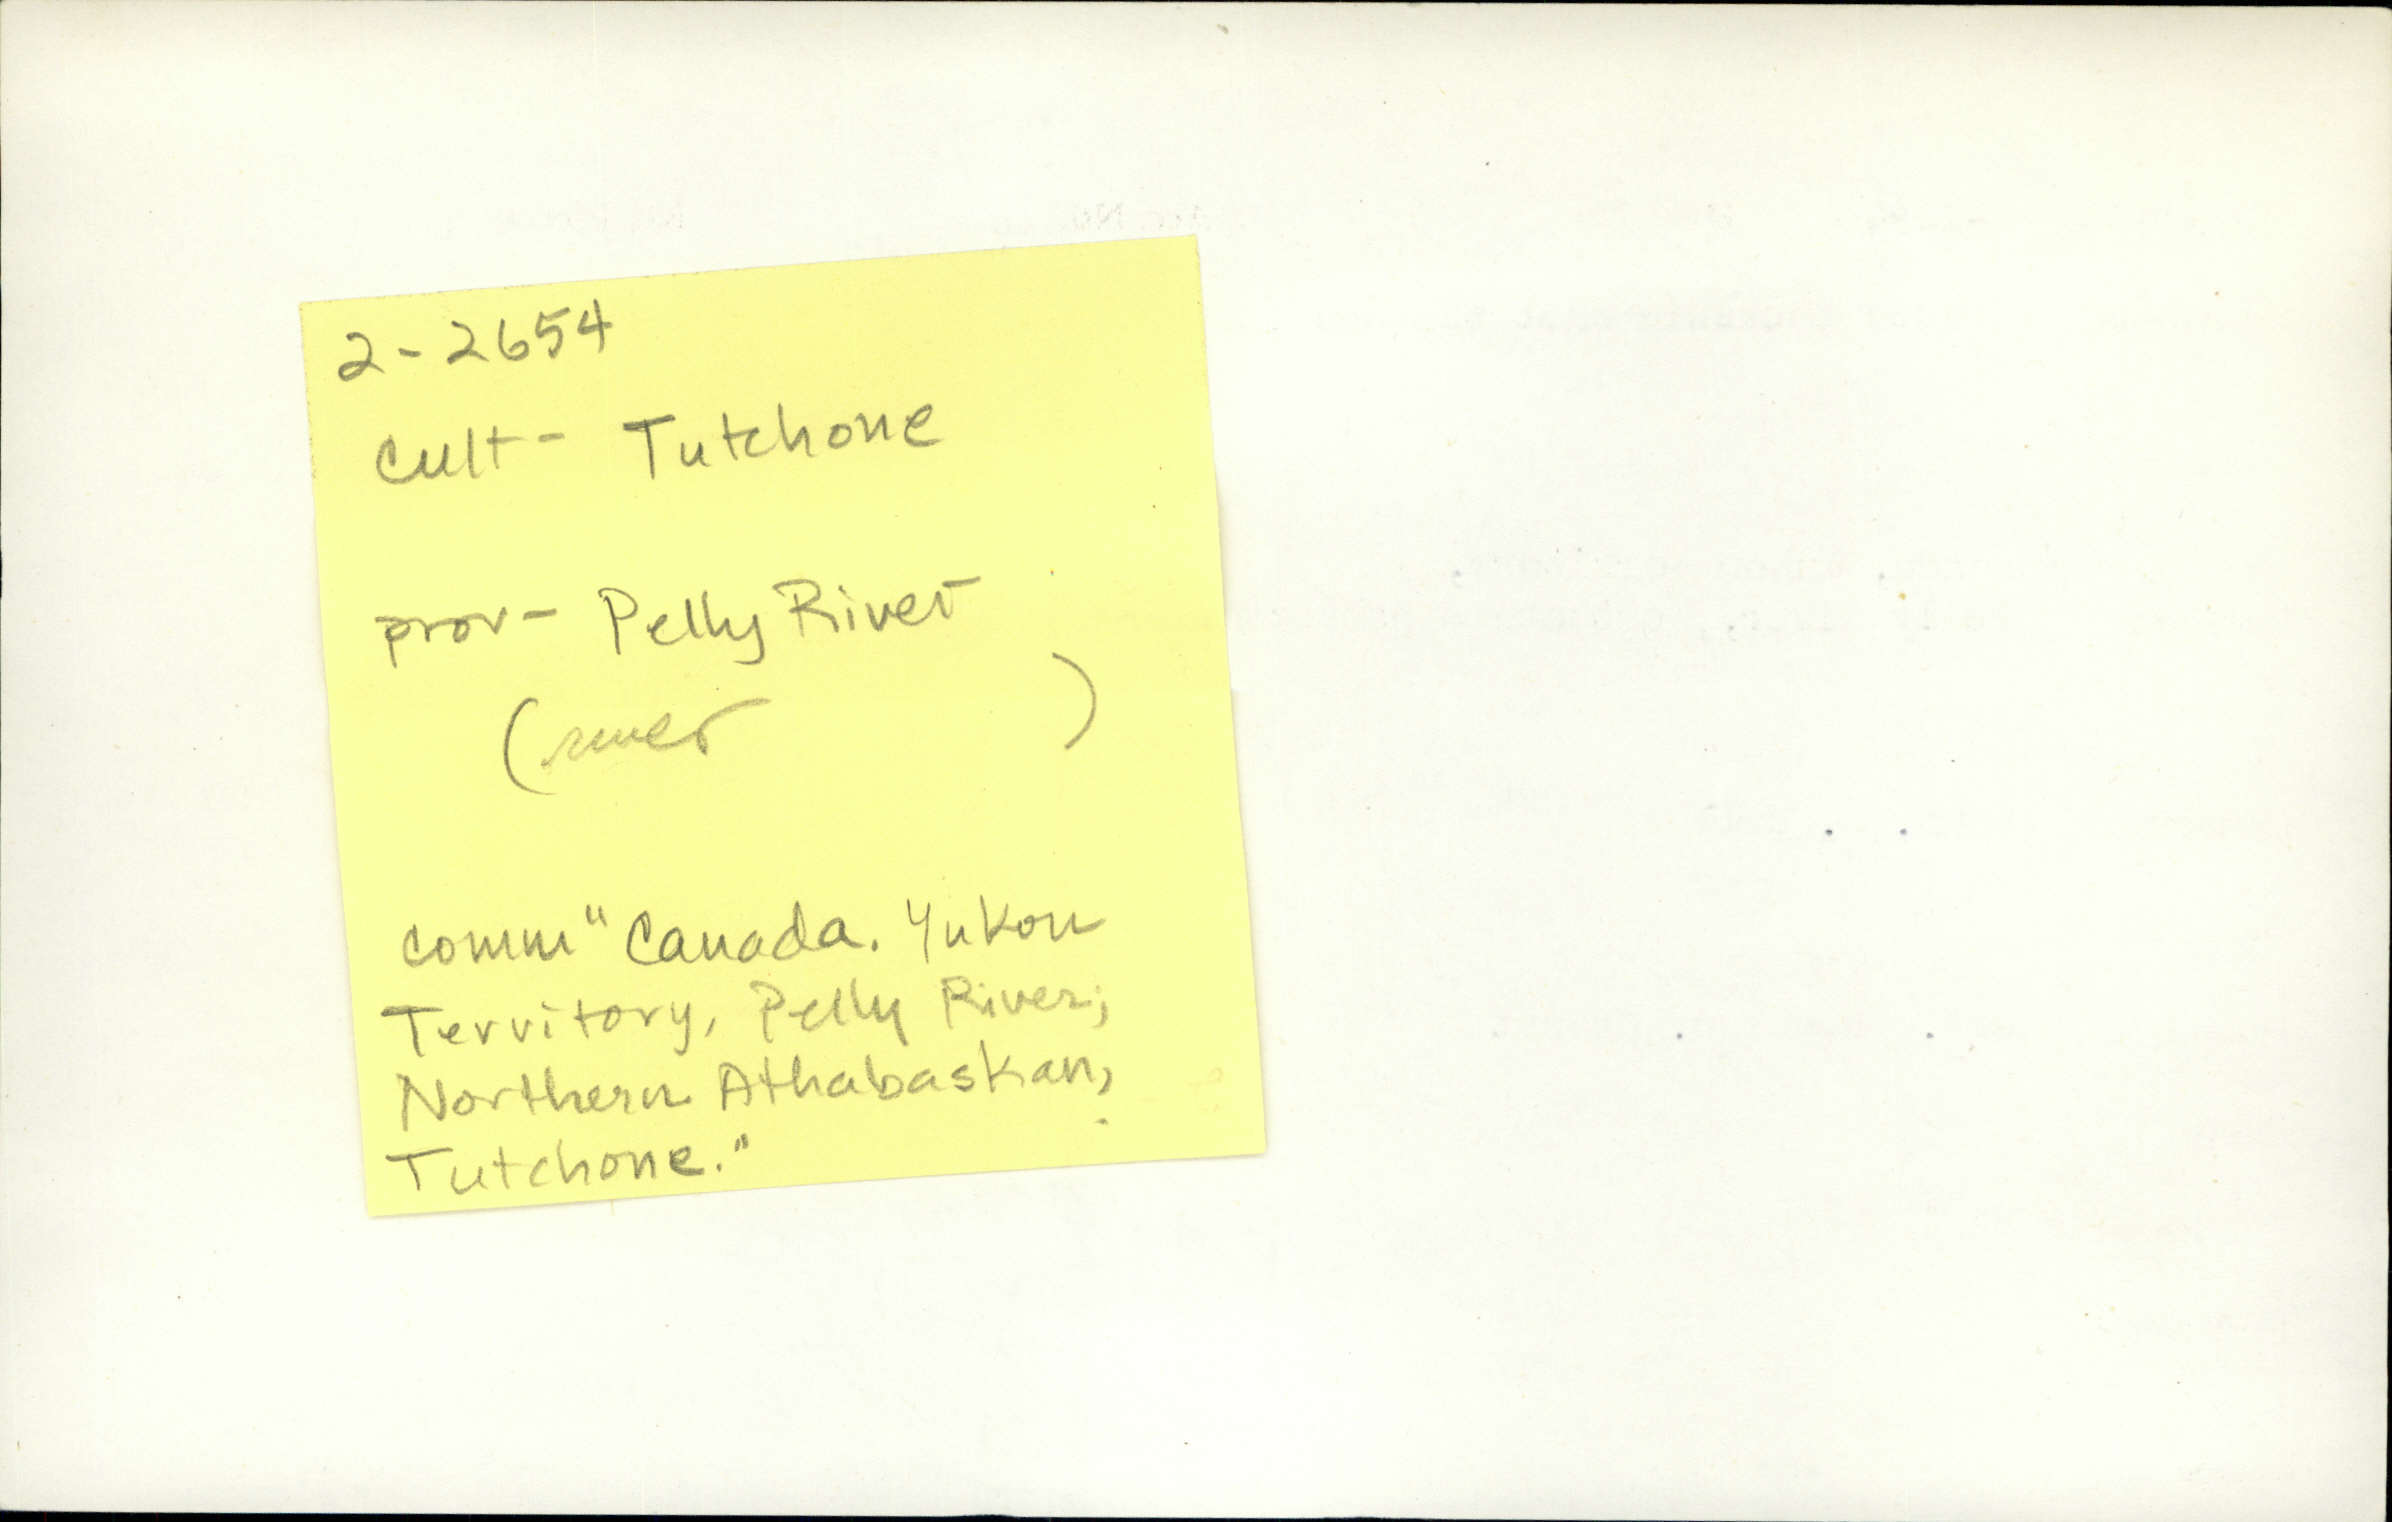 2-2654
cult- Tutchone
prov- Pelly River
(river )
comm "Canada. Yukon
Territory, Pelly River;
Northern Athabaskan,
Tutchone."